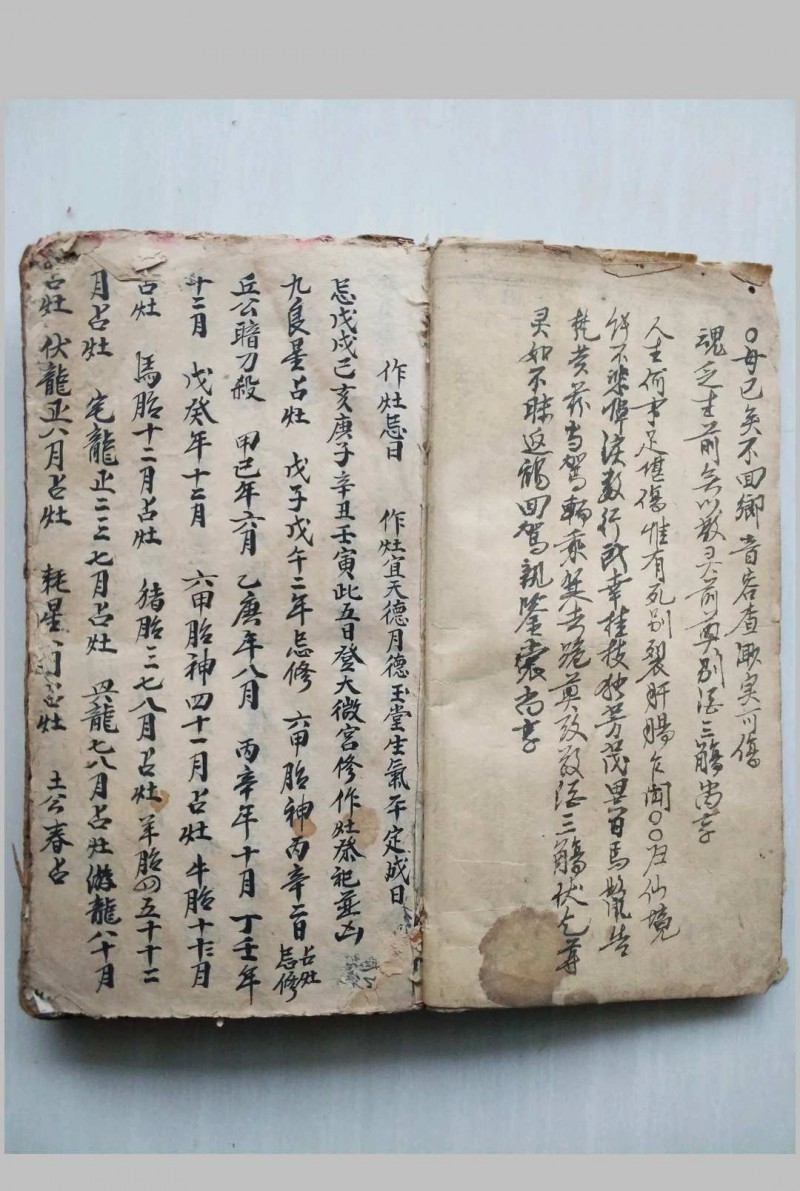 〇母已矣不回鄉音容杳渺实可傷
魂之生前无以敬灵前奠别酒三觴尚享
人生何事足堪傷惟有死别裂肝腸乍闻〇〇归仙境
不悲啼淚数行幸桂枝独芳茂異百馬告
英当駕輀乘其去跪奠致敬酒三觴伏乞尊
灵如不昧返鶴回駕親鉴尚享
作灶忌日 作灶宜天德月德玉堂生氣平定成日
忌戊戌己亥庚子辛丑壬寅此五日登大微宮修作灶祭祀並凶
九良星占灶 戊子戊午二年忌修 六甲胎神丙辛二日占灶忌修
丘公暗刀殺 甲己年六月 乙庚年八月 丙辛年十月 丁壬年
十二月 戊癸年十二月 六甲胎神四十一月占灶 牛胎十十三月
占灶 馬胎十二月占灶 猪胎三七八月占灶 羊胎四五十十二
月占灶 宅龍正二三七月占灶 具龍七八月占灶 游龍八十月
占灶 伏龍正八月占灶 耗星 月占灶 土公春占